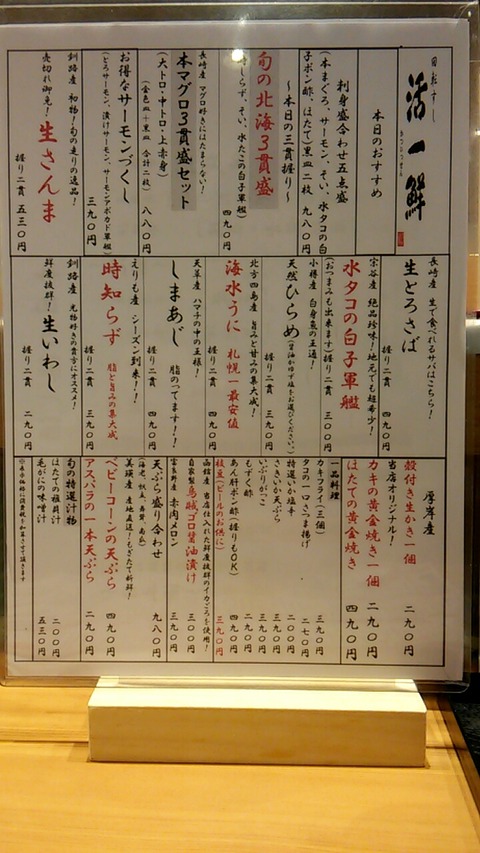 回転すし
活一鮮
かついっせん
本日のおすすめ
刺身盛合わせ五点盛
(本まぐろ、サーモン、そい、水タコの白
子ポン酢、ほたて)黒皿二枚 九八〇円
〜本日の三貫握り〜
旬の北海3貫盛
時しらず、そい、水たこの白子軍艦)
四九〇円
長崎産 マグロ好きにはたまらない!
本マグロ3貫盛セット
(大トロ・中トロ・上赤身)
(金色皿+黒皿 合計二枚) 八八〇円
お得なサーモンづくし
(とろサーモン、漬けサーモン、サーモンアボカド軍艦)
三九〇円
釧路産 初物!旬の走りの逸品!
売切れ御免! 生さんま
握り二貫 五三〇円
長崎産 生で食べれるサバはこちら!
生とろさば
握り二貫 二九〇円
宗谷産 絶品珍味!地元でも超希少!
水タコの白子軍艦
(おつまみも出来ます)握り二貫 三〇〇円
小樽産 白身魚の王道!
天然ひらめ(醤油かゆず塩をお選びください。)
握り二貫 三九〇円
北方四島産 旨みと甘みの集大成!
海水うに 札幌一最安値
握り二貫 四九〇円
天草産 ハマチの中の王様!
しまあじ 脂のってます!!
握り二貫 四九〇円
えりも産 シーズン到来!!
時知らず 脂と旨みの集大成
握り二貫 三九〇円
釧路産 光物好きの貴方にオススメ!
鮮度抜群! 生いわし
握り二貫 二九〇円
厚岸産
殻付き生かき一個 二九〇円
当店オリジナル!
カキの黄金焼き一個 二九〇円
ほたての黄金焼き 四九〇円
一品料理
カキフライ(三個) 三九〇円
タコの一口さつま揚げ 二七〇円
特選いか塩辛 二〇〇円
さきいか天ぷら 三九〇円
いぶりがっこ 二九〇円
もずく酢 二九〇円
あん肝ポン酢(握りもOK) 四九〇円
枝豆(ビールのお供に) 三九〇円
函館産 当店仕入れた鮮度抜群のイカごろを使用!
自家製烏賊ゴロ醤油漬け 三〇〇円
富良野産 赤肉メロン 三九〇円
天ぷら盛り合わせ 九八〇円
美瑛産 産地直送!もぎたて新鮮!
ベビーコーンの天ぷら 四九〇円
アスパラの一本天ぷら 二九〇円
旬の特選汁物
ほたての稚貝汁 二〇〇円
毛がにの味噌汁 五三〇円
※表示価格に消費税を加算させて頂きます